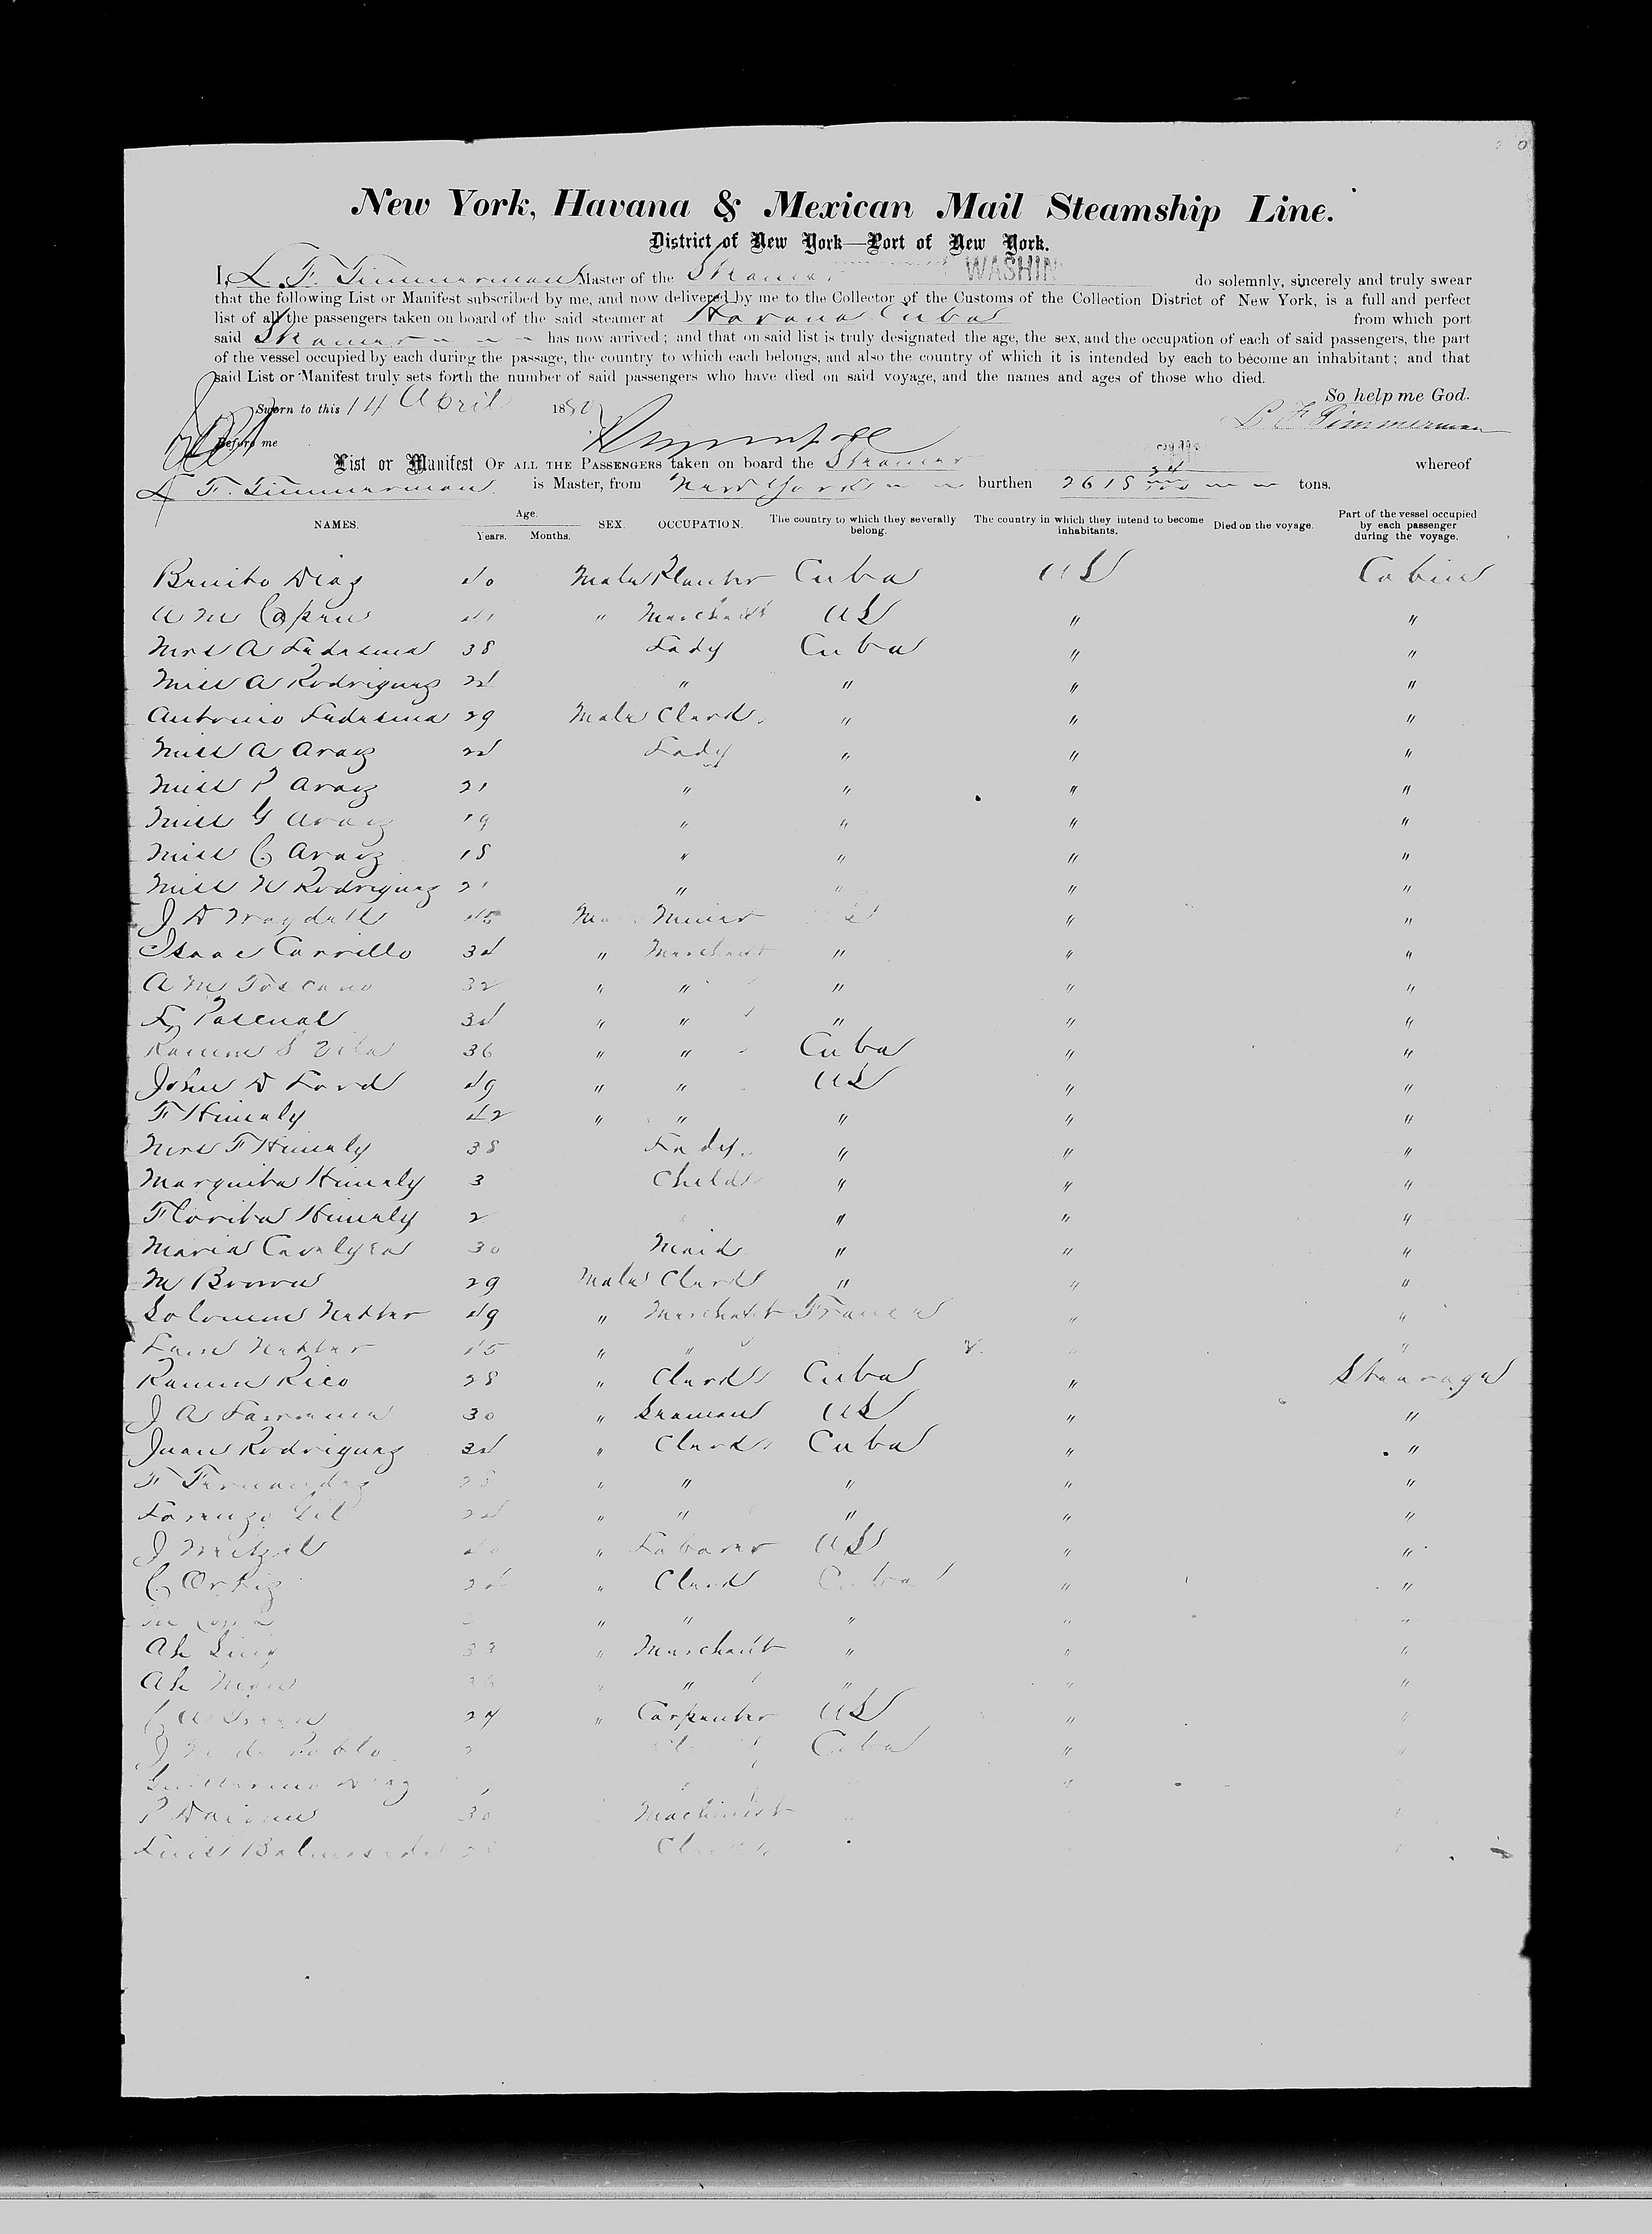 New York, Havana & Mexican Mail Steamship Line.
District of New York—Port of New York.
I, L. F. Timmerman Master of the Steamer WASHIN do solemnly, sincerely and truly swear
that the following List or Manifest subscribed by me, and now delivered by me to the Collector of the Customs of the Collection District of New York, is a full and perfect
list of all the passengers taken on board of the said steamer at Havana Cuba from which port
said Steamer has now arrived; and that on said list is truly designated the age, the sex, and the occupation of each of said passengers, the part
of the vessel occupied by each during the passage, the country to which each belongs, and also the country of which it is intended by each to become an inhabitant; and that
said List or Manifest truly sets forth the number of said passengers who have died on said voyage, and the names and ages of those who died.
So help me God.
Sworn to this 14 April 188
L F Timmerman
Before me
List or Manifest OF ALL THE PASSENGERS taken on board the Steamer whereof
L F. Timmerman is Master, from New York burthen 2618 tons.
NAMES. Age. Years. Months. SEX. OCCUPATION. The country to which they severally belong. The country in which they intend to become inhabitants. Died on the voyage. Part of the vessel occupied by each passenger during the voyage.
Benito Diaz 40 Male Planter Cuba US Cabin
A M 41 " Merchant US " "
Mrs A Ledesma 38 Lady Cuba " "
Miss A Rodriguez 24 " " " "
Antonio Ledesma 29 Male Clerk " " "
Miss A Araoz 24 Lady " " "
Miss P Araoz 21 " " " "
Miss G Araoz 19 " " " "
Miss C Araoz 18 " " " "
Miss N Rodriguez 21 " " " "
J D 45 Miner " "
Isaac Carrillo 34 " Merchant " " "
A M Toscano 32 " " " " "
F Pascual 34 " " " " "
Ramon S Vila 36 " " Cuba " "
John D Ford 49 " " US " "
F Himely 42 " " " " "
Mrs F Himely 38 Lady " " "
Marquita Himely 3 Child " " "
Florita Himely 2 " " "
Maria 30 Maid " " "
M Brown 29 Male Clerk " " "
Solomon Netter 49 " Merchant France " "
Netter 15 " " " "
Ramon Rico 28 " Clerk Cuba " Steerage
J A 30 " Seaman US " "
Juan Rodriguez 34 " Clerk Cuba " "
F Fernandez 28 " " " " "
Lorenzo Gil 24 " " " " "
J 40 " Laborer US " "
C Ortiz 24 " Clerk Cuba " "
M " " " " "
Ah Sing 33 " Merchant " " "
Ah 36 " " " " "
C A 24 " Carpenter US " "
J Pablo Cuba " "
Guillermo Diaz "
P 30 Machinist
Luis Clerk